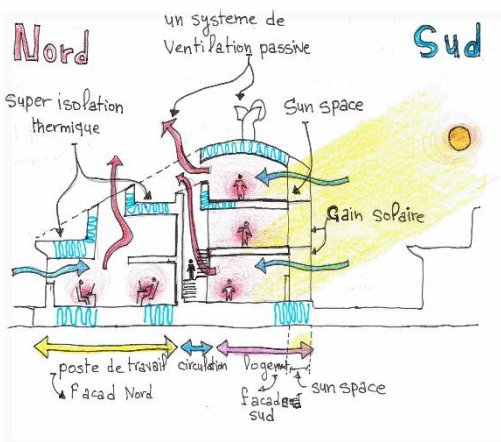 Nord
un systeme de
Ventilation passive
Sud
Super isolation
thermique
Sun space
Gain solaire
poste de travail
Facad Nord
circulation
logement
facade
sud
sun space